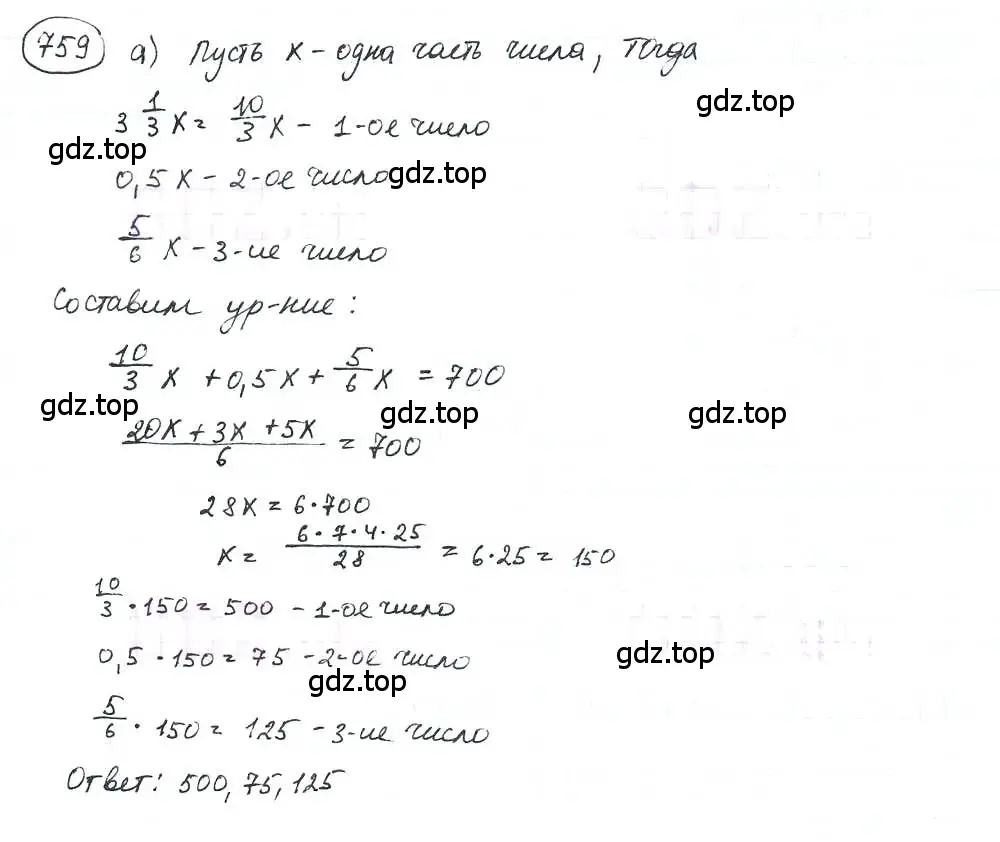 759 а) Пусть x - одна часть числа, тогда
gdz.top
3 1/3 x = 10/3 x - 1-ое число
gdz.top
0,5x - 2-ое число
gdz.top
5/6 x - 3-ие число
Составим ур-ние:
10/3 x + 0,5x + 5/6 x = 700
gdz.top
gdz.top
gdz.top
(20x + 3x + 5x)/6 = 700
28x = 6·700
x = (6·7·4·25)/28 = 6·25 = 150
10/3 · 150 = 500 - 1-ое число
0,5 · 150 = 75 - 2-ое число
gdz.top
gdz.top
5/6 · 150 = 125 - 3-ие число
Ответ: 500, 75, 125